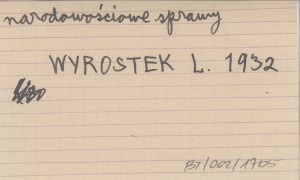 narodowościowe sprawy
WYROSTEK L. 1932
BJ/062/1705